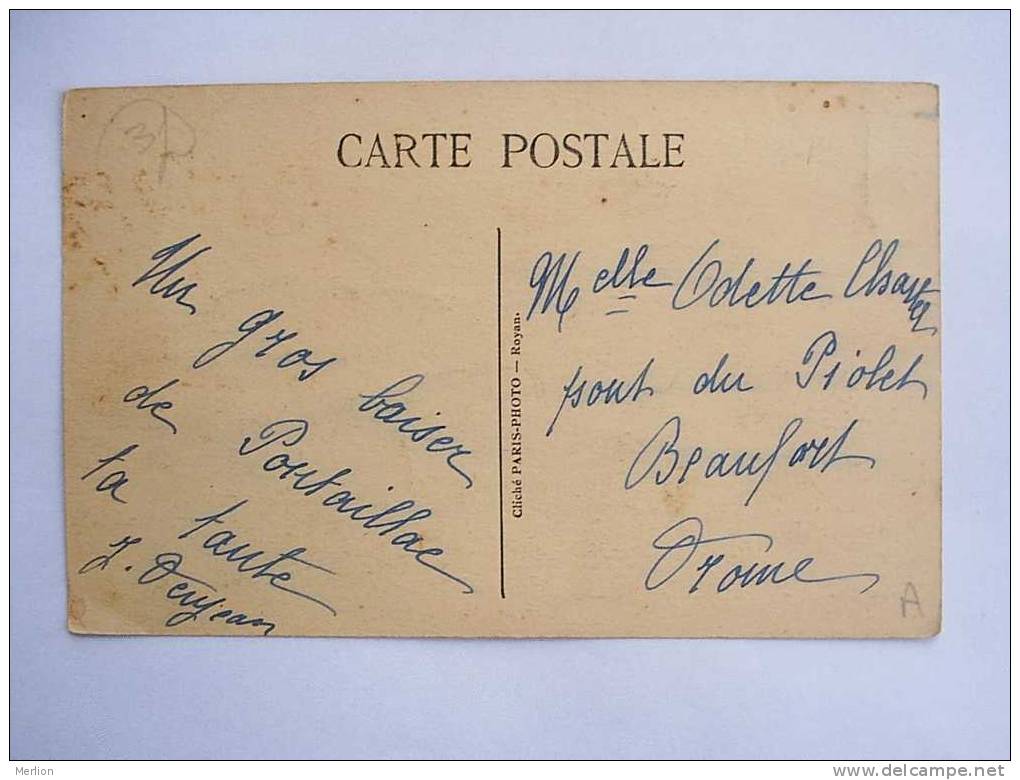 3
CARTE POSTALE
Un gros baiser
de Pontaillac
ta tante
J. Denjean
Cliché PARIS-PHOTO — Royan.
Melle Odette
pont du Piolet
Beaufort
Drome
A
Merlion
http://www.delcampe.net